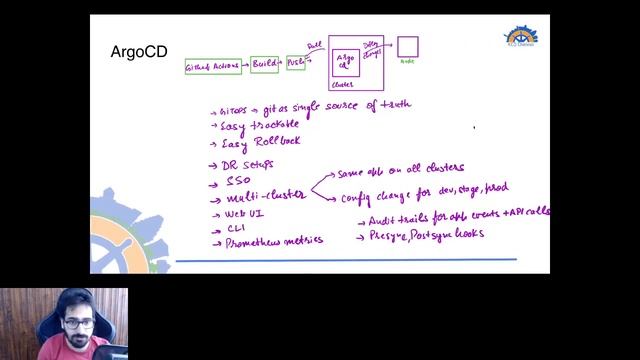 ArgoCD
KCD Chennai
Github Actions → Build → Push →
Pull
Argo CD
Cluster
Deploy changes
Node
→ GitOps → git as single source of truth
→ Easy trackable
→ Easy Rollback
→ DR Setups
→ SSO
→ Multi-cluster
→ Same app on all clusters
→ Config change for dev, stage, prod
→ Web UI
→ CLI
→ Prometheus metrics
→ Audit trails for app events + API calls
→ Presync, Postsync hooks